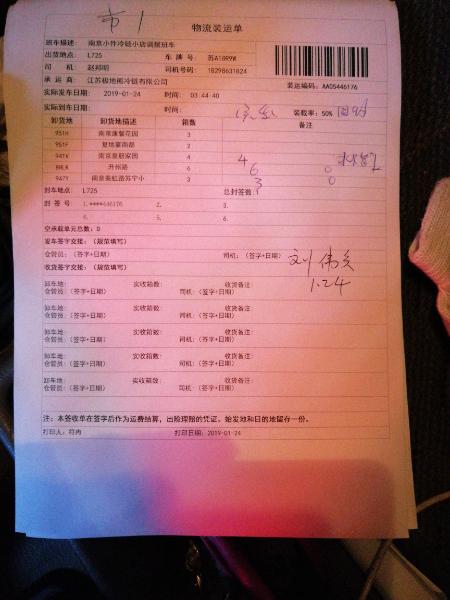 市1
物流装运单
班车描述: 南京小件冷链小店调拨班车
出货地点: L725 车牌号: 苏A18R9W
司 机: 赵邦明 司机号码: 18298631824
承 运 商: 江苏极地熊冷链有限公司 装运编码: AA05446176
实际发车日期: 2019-01-24 时间: 03:44:40
实际到车日期: 时间: 装载率: 50%
卸货地 卸货地描述 箱数 备注
951H 南京康馨花园 3
951F 复地宴南都 2
941K 南京皇册家园 4 4
8HLK 升州路 6 6 0
947Y 南京秦虹路苏宁小 3 3 0
封车地点: L725 总封签数:
封 签 号: 1.****646176 2. 3.
4. 5. 6.
空承载单元总数: 0
发车签字交接: (规范填写)
仓管员: (签字+日期) 司机: (签字+日期) 刘伟
收货签字交接: (规范填写) 1.24
卸车地: 实收箱数: 收货备注:
仓管员: (签字+日期) 司机: (签字+日期)
卸车地: 实收箱数: 收货备注:
仓管员: (签字+日期) 司机: (签字+日期)
卸车地: 实收箱数: 收货备注:
仓管员: (签字+日期) 司机: (签字+日期)
卸车地: 实收箱数: 收货备注:
仓管员: (签字+日期) 司机: (签字+日期)
卸车地: 实收箱数: 收货备注:
仓管员: (签字+日期) 司机: (签字+日期)
注: 本签收单在签字后作为运费结算, 出险理赔的凭证。始发地和目的地留存一份。
打印人: 符冉 打印日期: 2019-01-24